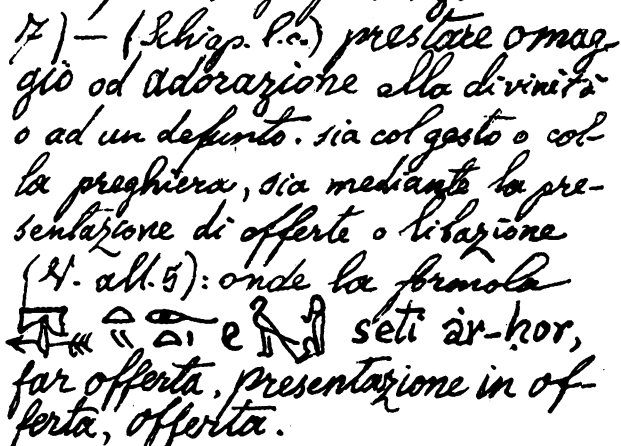 7) — (Schiap. l.c.) prestare omag-
gio od adorazione alla divinità
o ad un defunto. sia col gesto o col-
la preghiera, sia mediante la pre-
sentazione di offerte o libazione
(V. all. 5): onde la formola
e seti àr-hor,
far offerta, presentazione in of-
ferta, offerta.